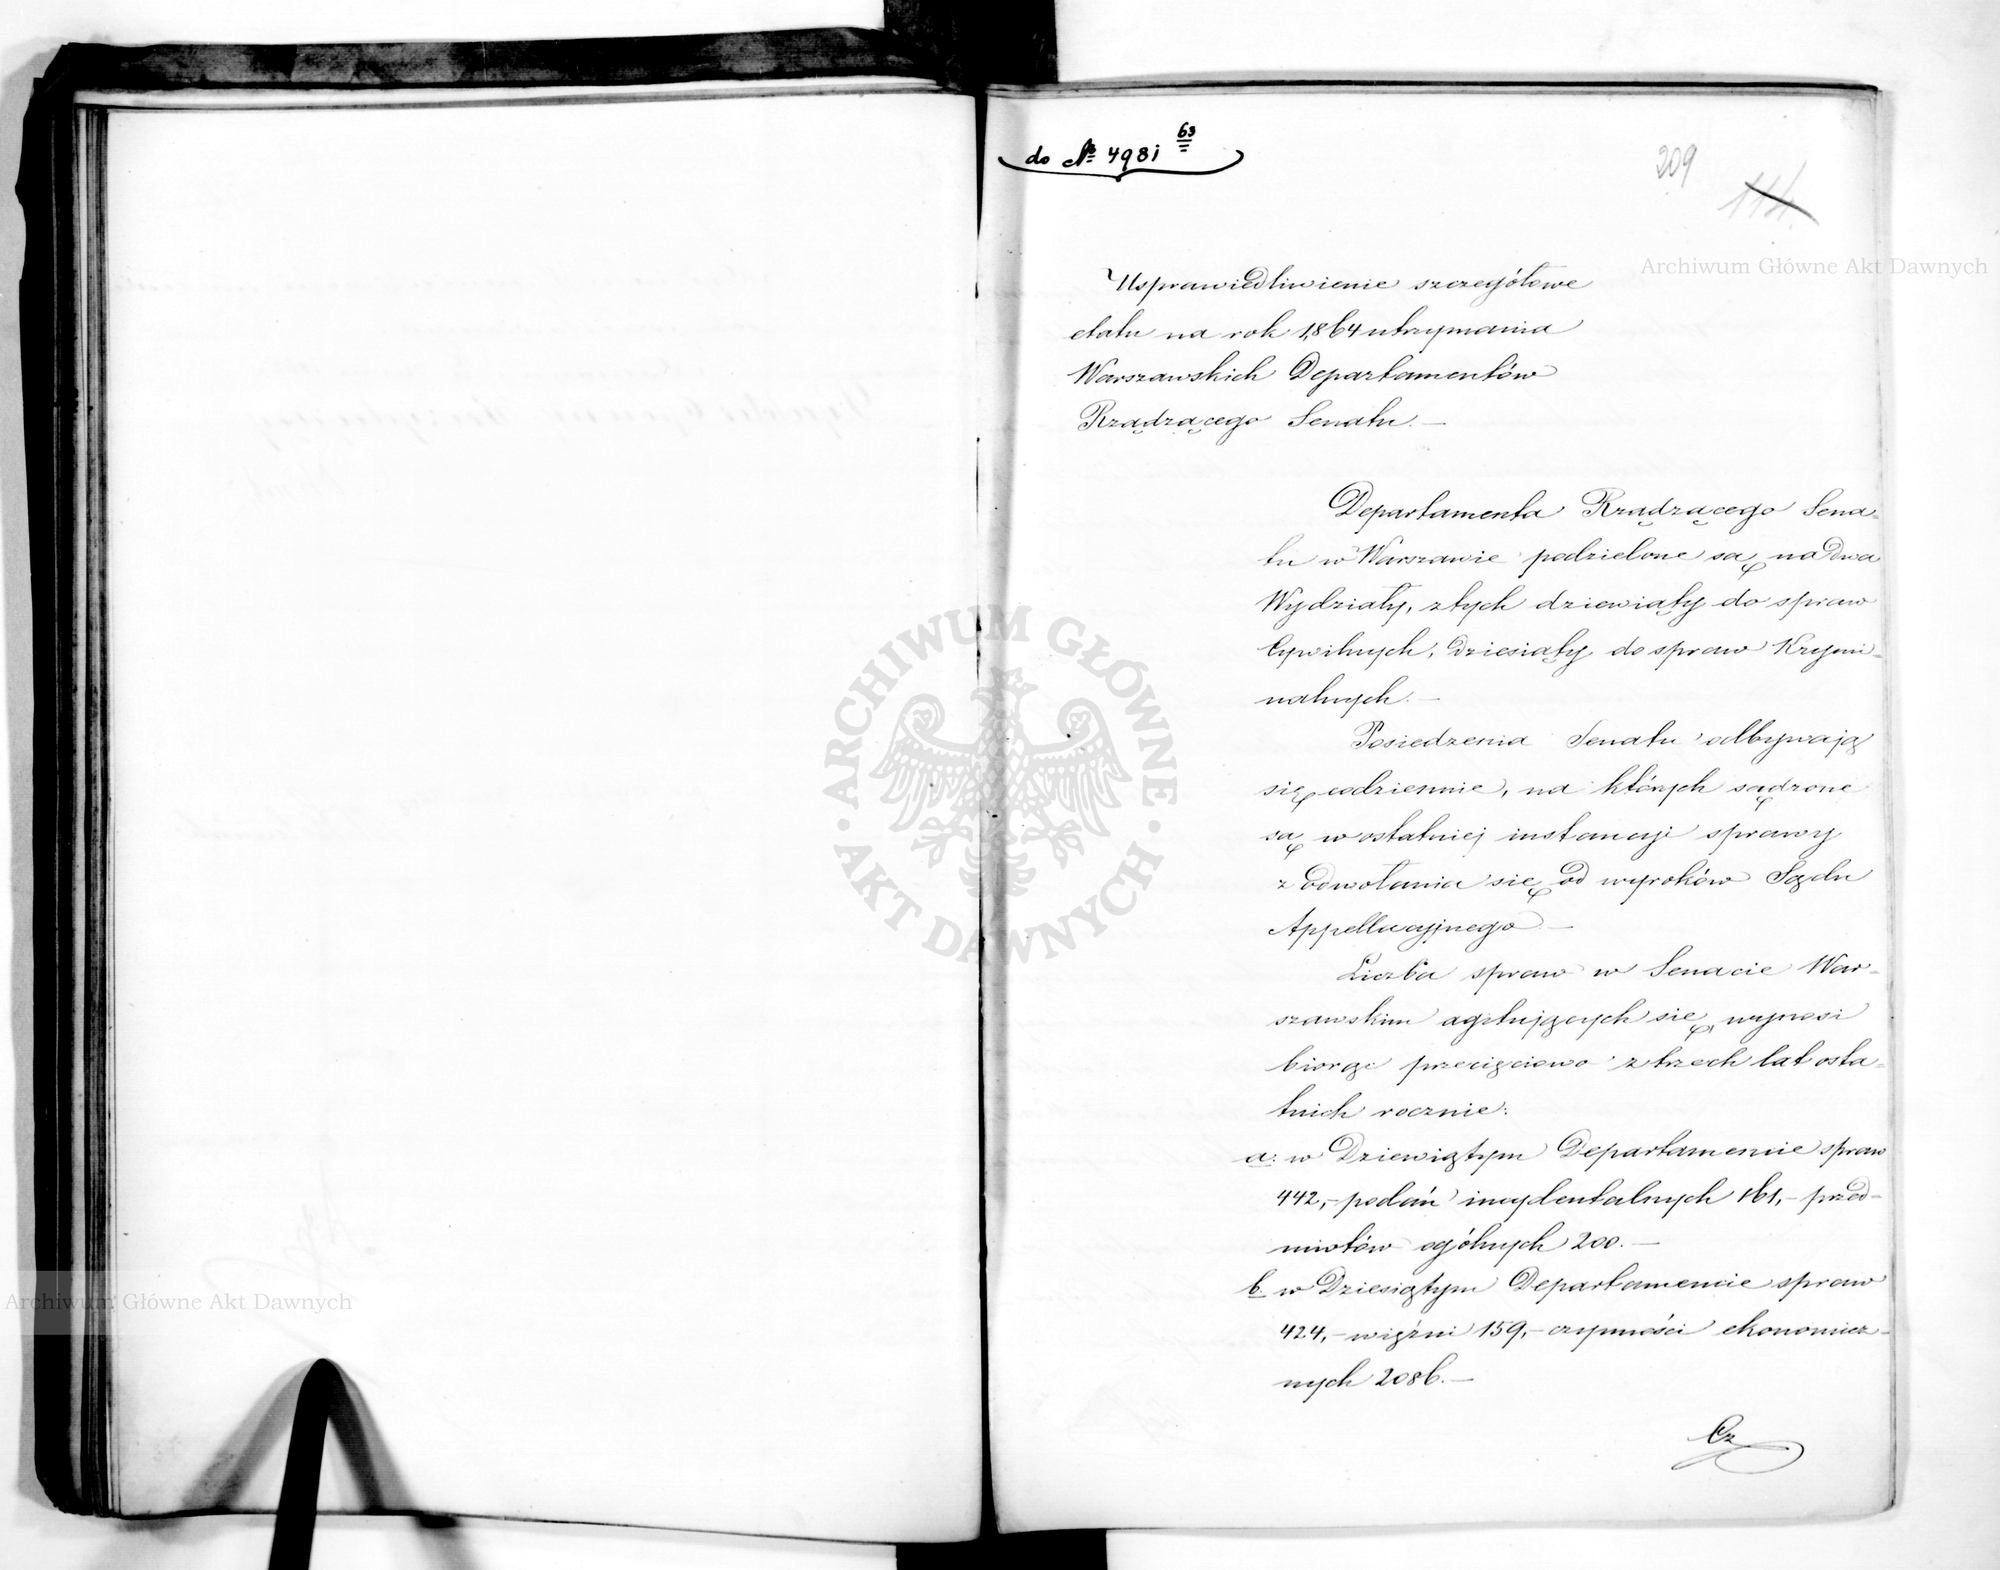 do № 4981 63
209
114
Archiwum Główne Akt Dawnych
Usprawiedliwienie szczegółowe
etatu na rok 1864 utrzymania
Warszawskich Departamentów
Rządzącego Senatu. —
Departamenta Rządzącego Sena=
tu w Warszawie podzielone są na dwa
Wydziały, z tych dziewiąty do spraw
Cywilnych, dziesiąty do spraw Krymi=
nalnych. —
Posiedzenia Senatu odbywają
się codziennie, na których sądzone
są w ostatniej instancyi sprawy
z odwołania się od wyroków Sądu
Appellacyjnego —
Liczba spraw w Senacie War=
szawskim agitujących się, wynosi
biorąc przecięciowo z trzech lat osta=
tnich rocznie:
a: w Dziewiątym Departamencie spraw
442, – podań incydentalnych 161, – przed=
miotów ogólnych 200. —
b. w Dziesiątym Departamencie spraw
424, – więźni 159, – czynności ekonomicz=
nych 2086. —
Cz
ARCHIWUM GŁÓWNE
· AKT DAWNYCH ·
Archiwum Główne Akt Dawnych